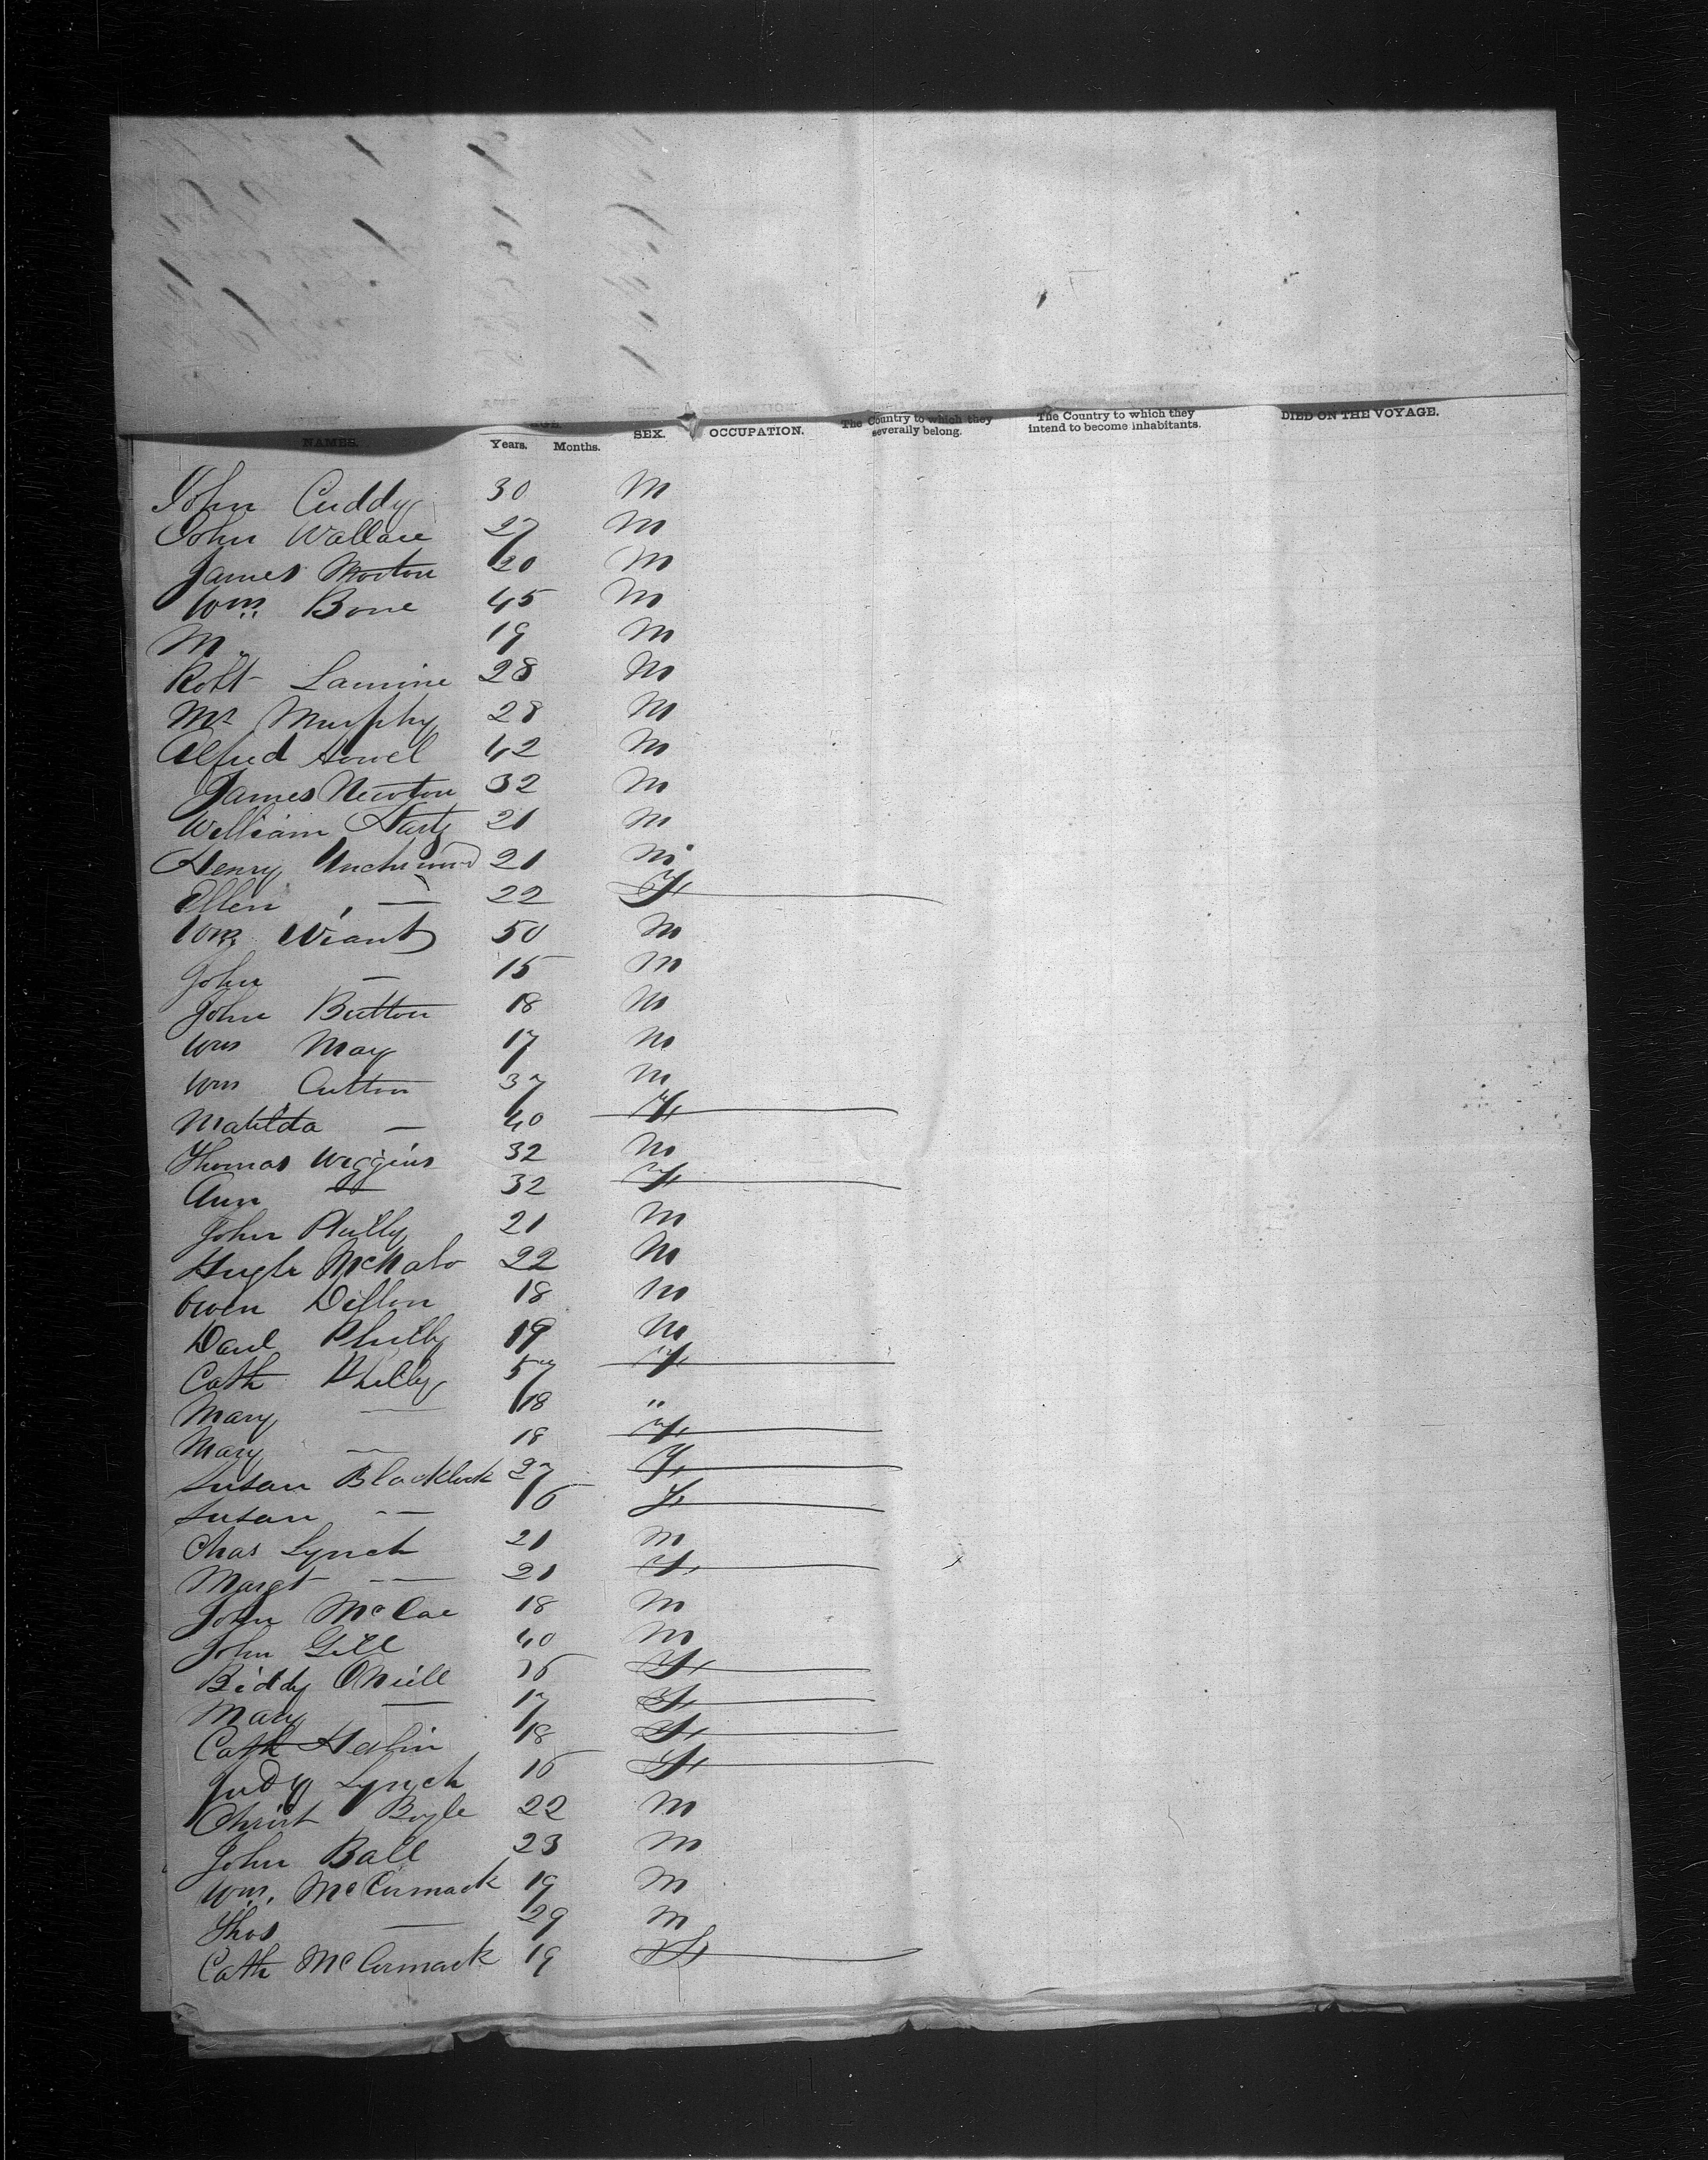 NAMES. AGE. Years. Months. SEX. OCCUPATION. The Country to which they severally belong. The Country to which they intend to become inhabitants. DIED ON THE VOYAGE.
John Cuddy 30 M
John Wallace 27 M
James Morton 20 M
Wm Bone 45 M
M " 19 M
Robt 28 M
Mr Murphy 28 M
Alfred Howel 42 M
James Newton 32 M
William 21 M
Henry 21 M
Ellen " — 22 F
Wm Wiant 50 M
John — 15 M
John Button 18 M
Wm May 17 M
Wm Cutton 37 M
Matilda — 40 F
Thomas Wiggins 32 M
Ann — 32 F
John 21 M
Hugh McNab 22 M
Owen Dillon 18 M
Danl Philly 19 M
Cath Philly 57 F
Mary — 18 "
Mary — 18 F
Susan Blacklock 27 F
Susan — 16 F
Chas Lynch 21 M
Margt — 21 F
John McCae 18 M
John Gill 40 M
Biddy ONeill 16 F
Mary — 17 F
Cath 18 F
Judy Lynch 16 F
Christ Boyle 22 M
John Ball 23 M
Wm. McCormack 19 M
Thos — 29 M
Cath McCormack 19 F